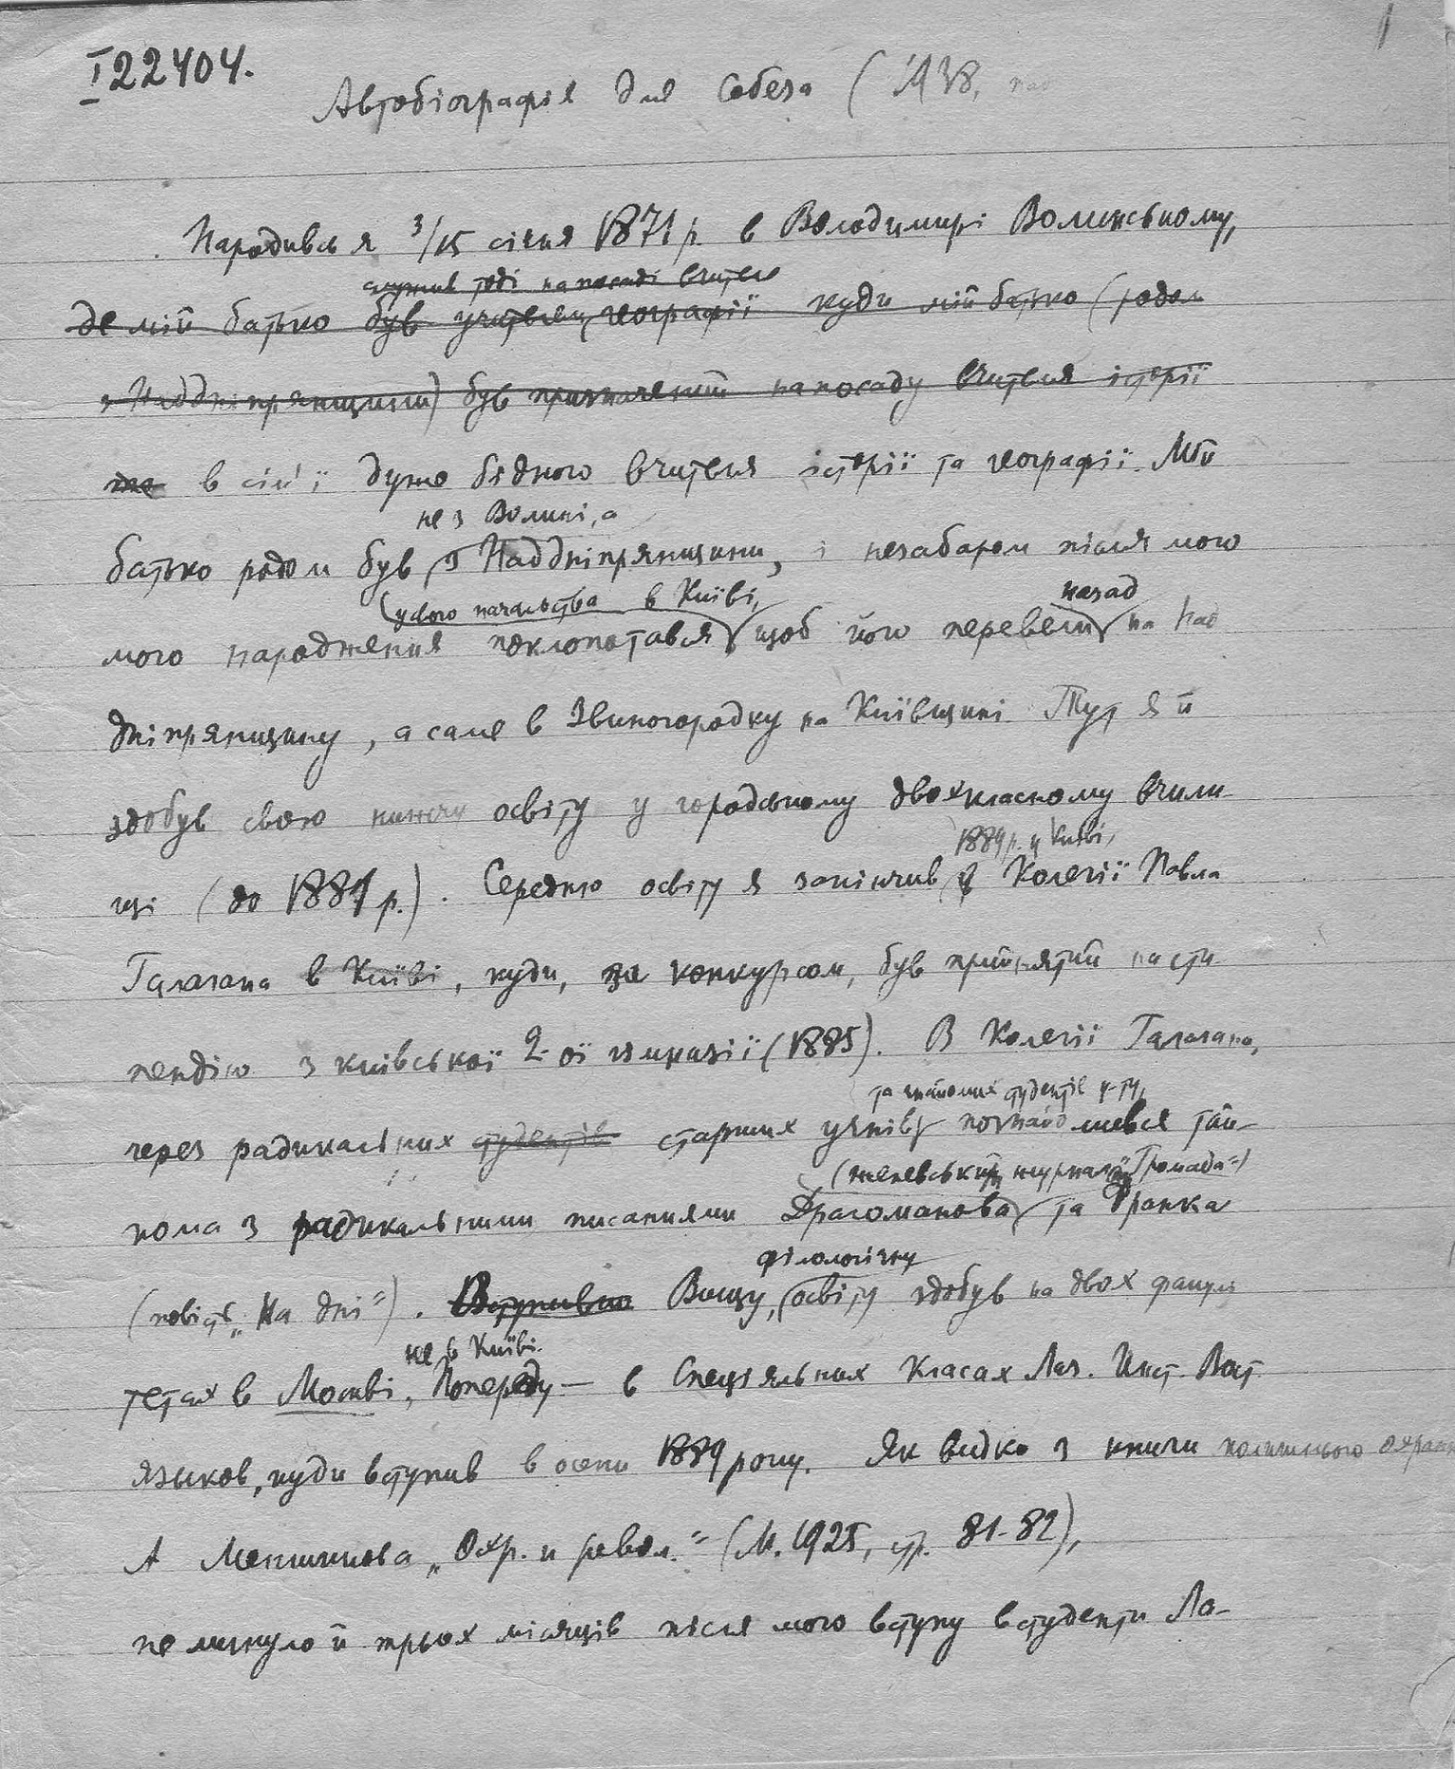 I 22404.
1
Автобіографія для Собеза (1938,
Народивсь я 3/15 січня 1871 р. в Володимирі Волинському,
служив тоді на посаді вчителя
де мій батько був учителем географії куди мій батько (родом
з Наддніпрянщини) був призначений на посаду вчителя історії
та в сім'ї дуже бідного вчителя історії та географії. Мій
не з Волині, а
батько родом був з Наддніпрянщини, і незабаром після мого
у свого начальства в Київі, назад
мого народження поклопотався, щоб його перевели на Над
дніпрянщину, а саме в Звиногородку на Київщині. Тут я й
здобув свою нижчу освіту у городському двохкласному вчили
1889 р. у Київі,
щі (до 1881 р.). Середню освіту я закінчив в Колегії Павла
Галагана в Київі, куди, за конкурсом, був прийнятий на сти
пендію з київської 2-ої гімназії (1885). В Колегії Галагана,
та знайомих студентів у-ту,
через радикальних студентів старших учнів познайомився тай-
(женевський журнал „Громада")
кома з радикальними писаннями Драгоманова та Франка
філологічну
(повість „На дні"). Вступивши Вищу освіту здобув на двох факуль
не в Київі.
тетах в Москві, Попереду — в Спеціяльних Класах Лаз. Инст. Вост.
языков, куди вступив в осени 1889 року. Як видко з книги колишнього охран
А Меншикова „Охр. и револ." (М. 1925, стр. 81-82),
не минуло й трьох місяців після мого вступу в студенти Ла-